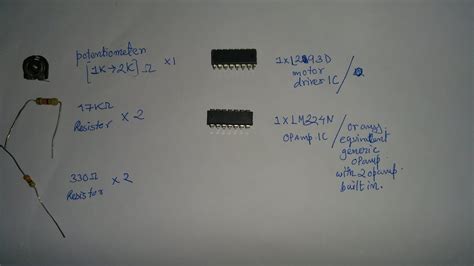 potentiometer
[1K→2K] Ω ×1
47KΩ
Resistor × 2
330Ω
Resistor × 2
1×L293D
motor
driver IC /
1×LM324N
OPamp IC /
or any
equivalent
generic
opamp
with 2 opamp
built in.